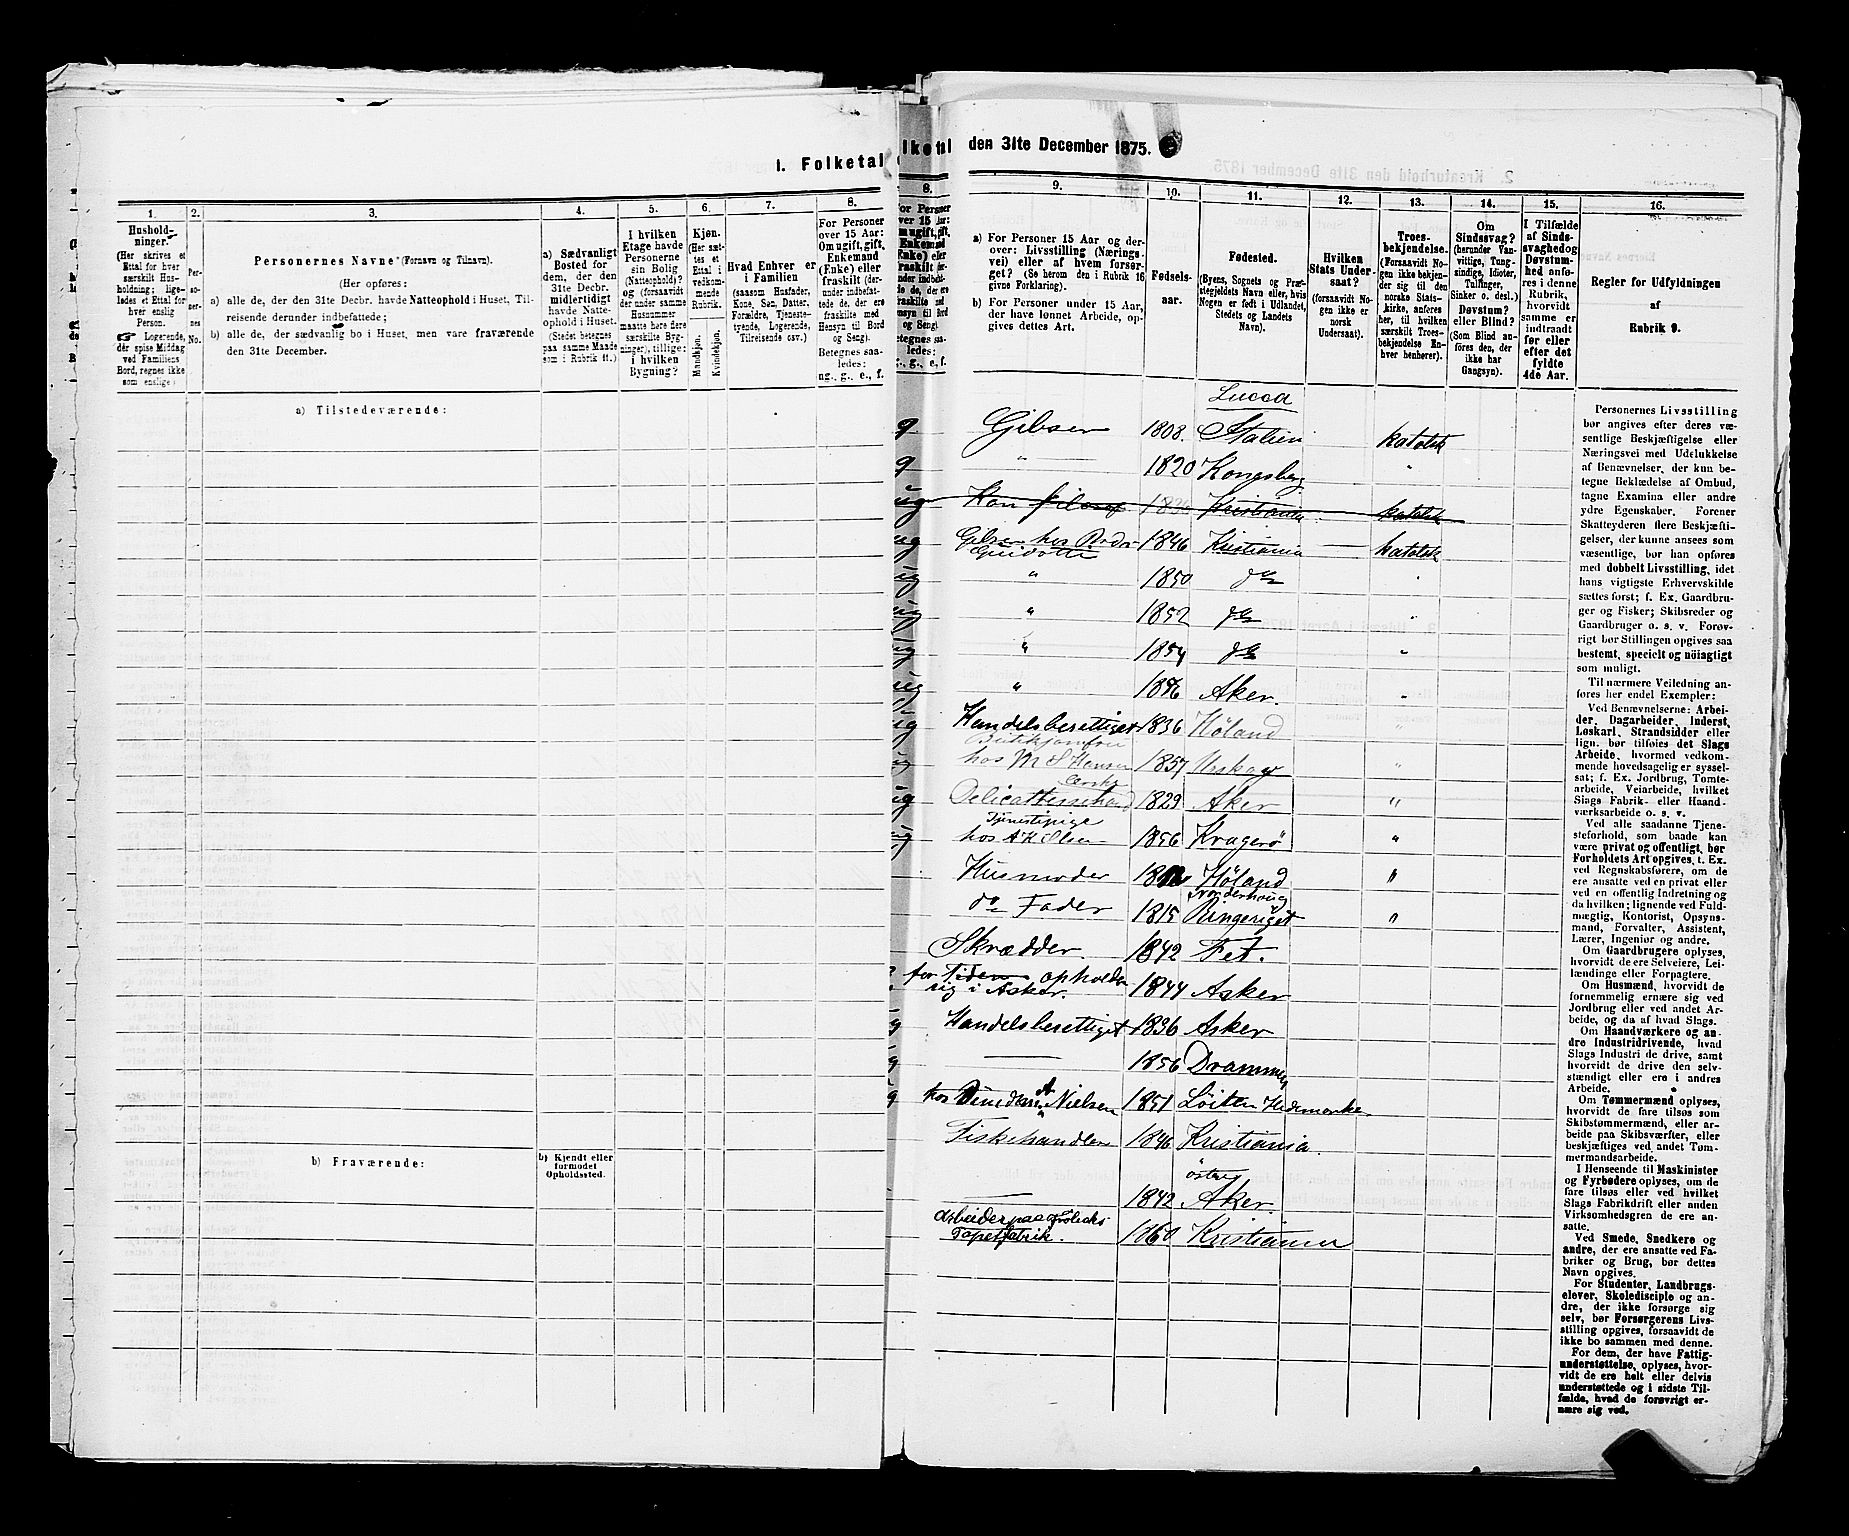 1. Folketal
lketal
den 31te December 1875.
1.
Hushold-
ninger.
(Her skrives et
Ettal for hver
særskilt Hus-
holdning; lige-
ledes et Ettal for
hver enslig
Person.
Logerende,
der spise Middag
ved Familiens
Bord, regnes ikke
som enslige)
2.
Per-
so-
ner-
nes
No.
3.
Personernes Navne (Fornavn og Tilnavn).
(Her opføres:
a) alle de, der den 31te Decbr. havde Natteophold i Huset, Til-
reisende derunder indbefattede;
b) alle de, der sædvanlig bo i Huset, men vare fraværende
den 31te December.
4.
a) Sædvanligt
Bosted for
dem, der den
31te Decbr.
midlertidigt
havde Natte-
ophold i Huset.
(Stedet betegnes
paa samme Maade
som i Rubrik 11.)
5.
I hvilken
Etage havde
Personerne
sin Bolig
(Natteophold)?
og (forsaavidt
der under samme
Husnummer
maatte høre flere
særskilte Byg-
ninger), tillige:
i hvilken
Bygning?
6.
Kjøn.
(Her sæt-
tes et
Ettal i
vedkom-
mende
Rubrik.
Mandkjøn.
Kvindekjøn.
7.
Hvad Enhver er
i Familien
(saasom Husfader,
Kone, Søn, Datter,
Forældre, Tjeneste-
tyende, Logerende,
Tilreisende osv.)
8.
For Personer
over 15 Aar:
Om ugift, gift,
Enkemand
(Enke) eller
fraskilt (der-
under indbefat-
tede de, der ere
fraskilte med
Hensyn til Bord
og Seng).
Betegnes saa-
ledes:
ug., g., e., f.
a) Tilstedeværende:
b) Fraværende:
b) Kjendt eller
formodet
Opholdssted.
9.
a) For Personer 15 Aar og der-
over: Livsstilling (Nærings-
vei) eller af hvem forsør-
get? (Se herom den i Rubrik 16
givne Forklaring).
b) For Personer under 15 Aar,
der have lønnet Arbeide, op-
gives dettes Art.
10.
Fødsels-
aar.
11.
Fødested.
(Byens, Sognets og Præ-
stegjeldets Navn eller, hvis
Nogen er født i Udlandet,
Stedets og Landets
Navn).
12.
Hvilken
Stats Under-
saat?
(forsaavidt No-
gen ikke er
norsk
Undersaat).
13.
Troes-
bekjendelse.
(Forsaavidt No-
gen ikke bekjen-
der sig til den
norske Stats-
kirke, anføres
her, til hvilken
særskilt Troes-
bekjendelse En-
hver henhører).
14.
Om
Sindssvag?
(herunder Van-
vittige, Tung-
sindige, Idioter,
Tullinger,
Sinker o. desl.)
Døvstum?
eller Blind?
(Som Blind an-
føres den, der
ikke har
Gangsyn).
15.
I Tilfælde
af Sinds-
svaghed og
Døvstum-
hed anfø-
res i denne
Rubrik,
hvorvidt
samme er
indtraadt
før eller
efter det
fyldte
4de Aar.
16.
Regler for Udfyldningen
af
Rubrik 9.
Lucca
g Gibser 1808. Italien katolsk
g " 1820 Kongsberg "
ug 1830 Kristiania katolsk
ug Gibser hos 1846 Kristiania katolsk
Guidotti
ug " 1850 do "
ug " 1852 do "
ug " 1854 do "
ug " 1856 Aker. "
ug Handelsberettiget 1836 Høland "
Butikjomfru
ug hos M S Hansen 1857 Urskog "
ug Delicattessehand 1829 Aker "
Tjenestepige
ug hos A H Olsen 1856 Kragerö "
Husmoder Høland "
Norderhoug
do Fader 1815 Ringeriget "
Skrædder. 1842 Fet.
for Tiden opholder
sig i Asker. 1844 Asker
g Handelsberettiget 1836 Asker
g 1856 Drammen
g hos A Nielsen 1851 Löiten Hedemarken
Fiskehandler 1846 Kristiania.
östre
1842 Aker.
Arbeider paa
Tapetfabrik. 1860 Kristiania
Personernes Livsstilling
bør angives efter deres væ-
sentlige Beskjæftigelse eller
Næringsvei med Udelukkelse
af Benævnelser, der kun be-
tegne Beklædelse af Ombud,
tagne Examina eller andre
ydre Egenskaber. Forener
Skatteyderen flere Beskjæfti-
gelser, der kunne ansees som
væsentlige, bør han opføres
med dobbelt Livsstilling, idet
hans vigtigste Erhvervskilde
sættes først; f. Ex. Gaardbru-
ger og Fisker; Skibsreder og
Gaardbruger o. s. v. Forøv-
rigt bør Stillingen opgives saa
bestemt, specielt og nöiagtigt
som muligt.
Til nærmere Veiledning an-
føres her endel Exempler:
Ved Benævnelserne: Arbei-
der, Dagarbeider, Inderst,
Løskarl, Strandsidder eller
lign. bør tilføies det Slags
Arbeide, hvormed vedkom-
mende hovedsagelig er syssel-
sat; f. Ex. Jordbrug, Tomte-
arbeide, Veiarbeide, hvilket
Slags Fabrik- eller Haand-
værksarbeide o. s. v.
Ved alle saadanne Tjene-
steforhold, som baade kan
være privat og offentligt, bør
Forholdets Art opgives, t. Ex.
ved Regnskabsførere, om de
ere ansatte ved en privat eller
ved en offentlig Indretning og
da hvilken; lignende ved Fuld-
mægtig, Kontorist, Opsyns-
mand, Forvalter, Assistent,
Lærer, Ingeniør og andre.
Om Gaardbrugere oplyses,
hvorvidt de ere Selveiere, Lei-
lændinge eller Forpagtere.
Om Husmænd, hvorvidt de
fornemmelig ernære sig ved
Jordbrug eller ved andet Ar-
beide, og da af hvad Slags.
Om Haandværkere og an-
dre Industridrivende, hvad
Slags Industri de drive, samt
hvorvidt de drive den selv-
stændigt eller ere i andres
Arbeide.
Om Tømmermænd oplyses,
hvorvidt de fare tilsøs som
Skibstømmermænd, eller ar-
beide paa Skibsværfter, eller
beskjæftiges ved andet Tøm-
mermandsarbeide.
I Henseende til Maskinister
og Fyrbødere oplyses, om de
fare tilsøs eller ved hvilket
Slags Fabrikdrift eller anden
Virksomhedsgren de ere an-
satte.
Ved Smede, Snedkere og
andre, der ere ansatte ved Fa-
briker og Brug, bør dettes
Navn opgives.
For Studenter, Landbrugs-
elever, Skoledisciple og an-
dre, der ikke forsørge sig
selv, bør Forsørgerens Livs-
stilling opgives, forsaavidt de
ikke bo sammen med denne.
For dem, der have Fattig-
understøttelse, oplyses, hvor-
vidt de ere helt eller delvis
understøttede og i sidste Til-
fælde, hvad de forøvrigt er-
nære sig ved.